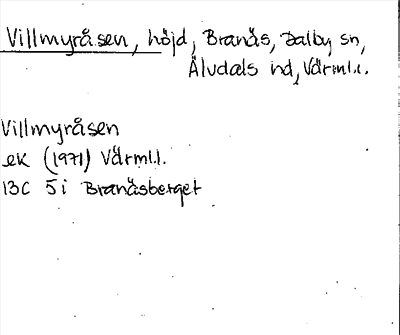 Villmyråsen, höjd, Branäs, Dalby sn,
Älvdals hd, Värml.l.
Villmyråsen
ek (1971) Värml.l.
13C 5i Branäsberget